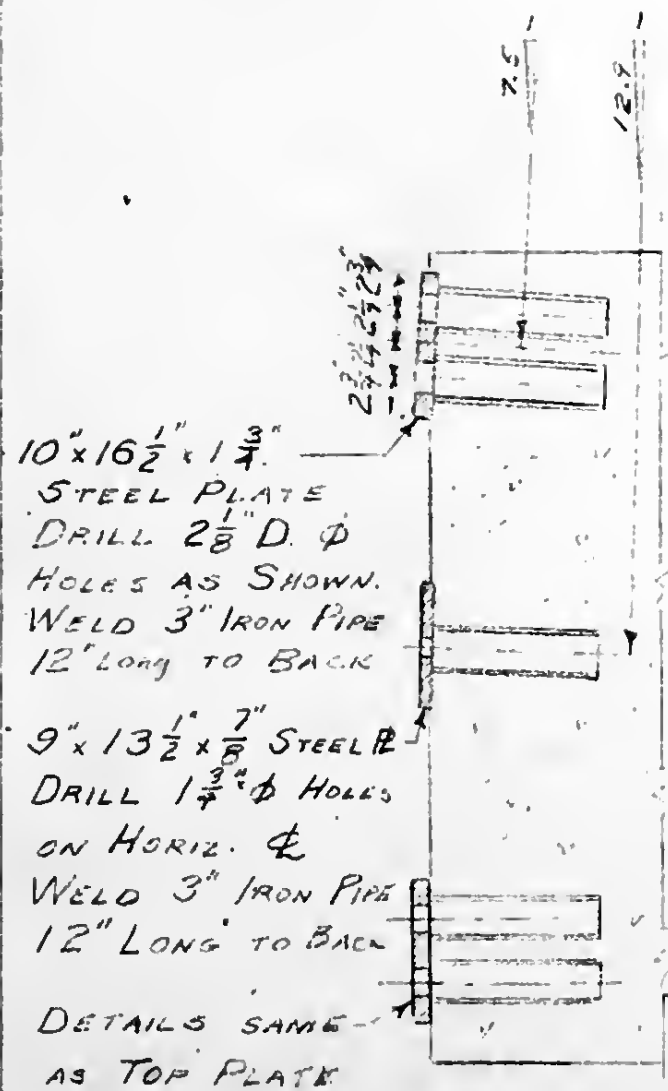 7.5
12.9
10" x 16 1/2" x 1 3/4"
STEEL PLATE
DRILL 2 1/8" D. ϕ
HOLES AS SHOWN.
WELD 3" IRON PIPE
12" LONG TO BACK
9" x 13 1/2" x 7/8" STEEL ℙL
DRILL 1 3/4" ϕ HOLES
ON HORIZ. ℄
WELD 3" IRON PIPE
12" LONG TO BACK
DETAILS SAME
AS TOP PLATE